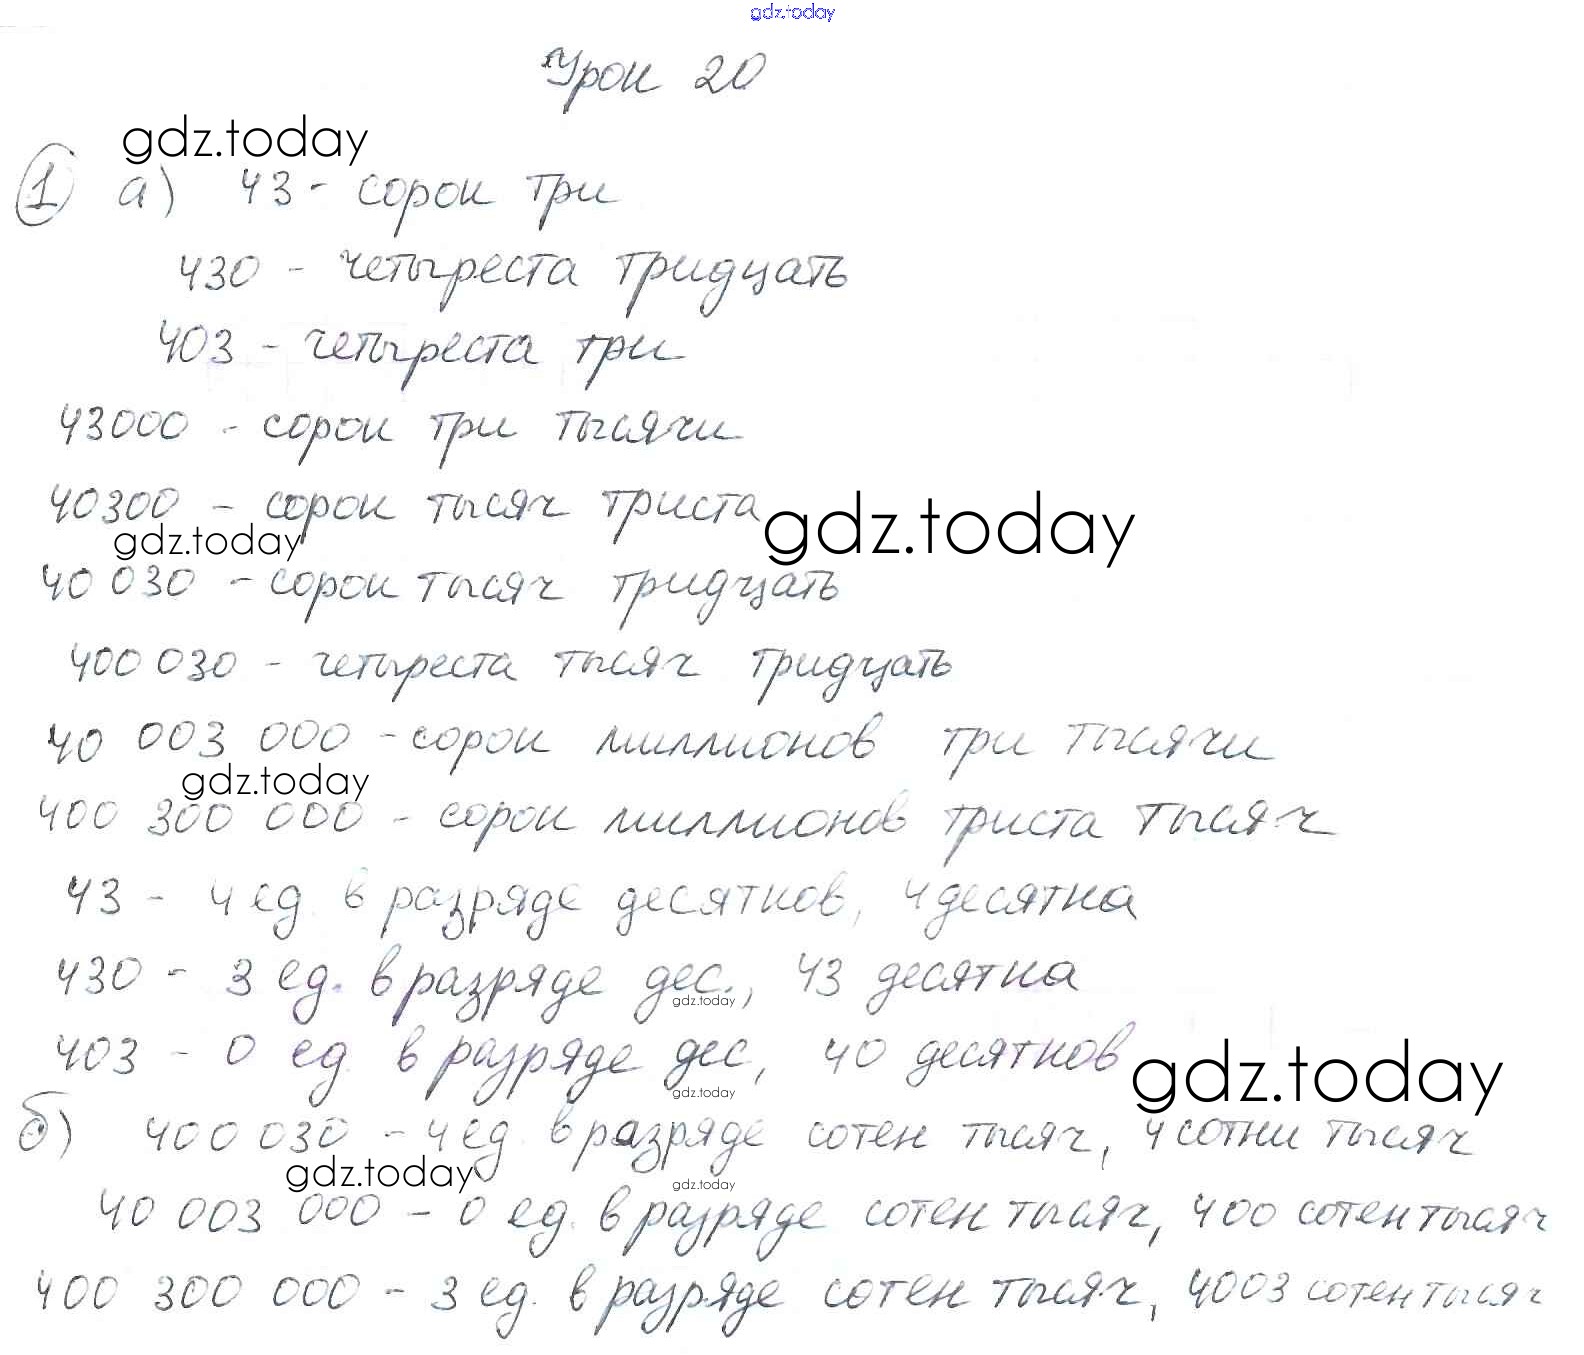 gdz.today
Урок 20
gdz.today
1 а) 43 - сорок три
430 - четыреста тридцать
403 - четыреста три
43000 - сорок три тысячи
40300 - сорок тысяч триста
gdz.today
gdz.today
40 030 - сорок тысяч тридцать
400 030 - четыреста тысяч тридцать
40 003 000 - сорок миллионов три тысячи
gdz.today
400 300 000 - сорок миллионов триста тысяч
43 - 4 ед. в разряде десятков, 4 десятка
430 - 3 ед. в разряде дес., 43 десятка
gdz.today
403 - 0 ед. в разряде дес, 40 десятков
gdz.today
gdz.today
б) 400 030 - 4 ед. в разряде сотен тысяч, 4 сотни тысяч
gdz.today
gdz.today
40 003 000 - 0 ед. в разряде сотен тысяч, 400 сотен тысяч
400 300 000 - 3 ед. в разряде сотен тысяч, 4003 сотен тысяч